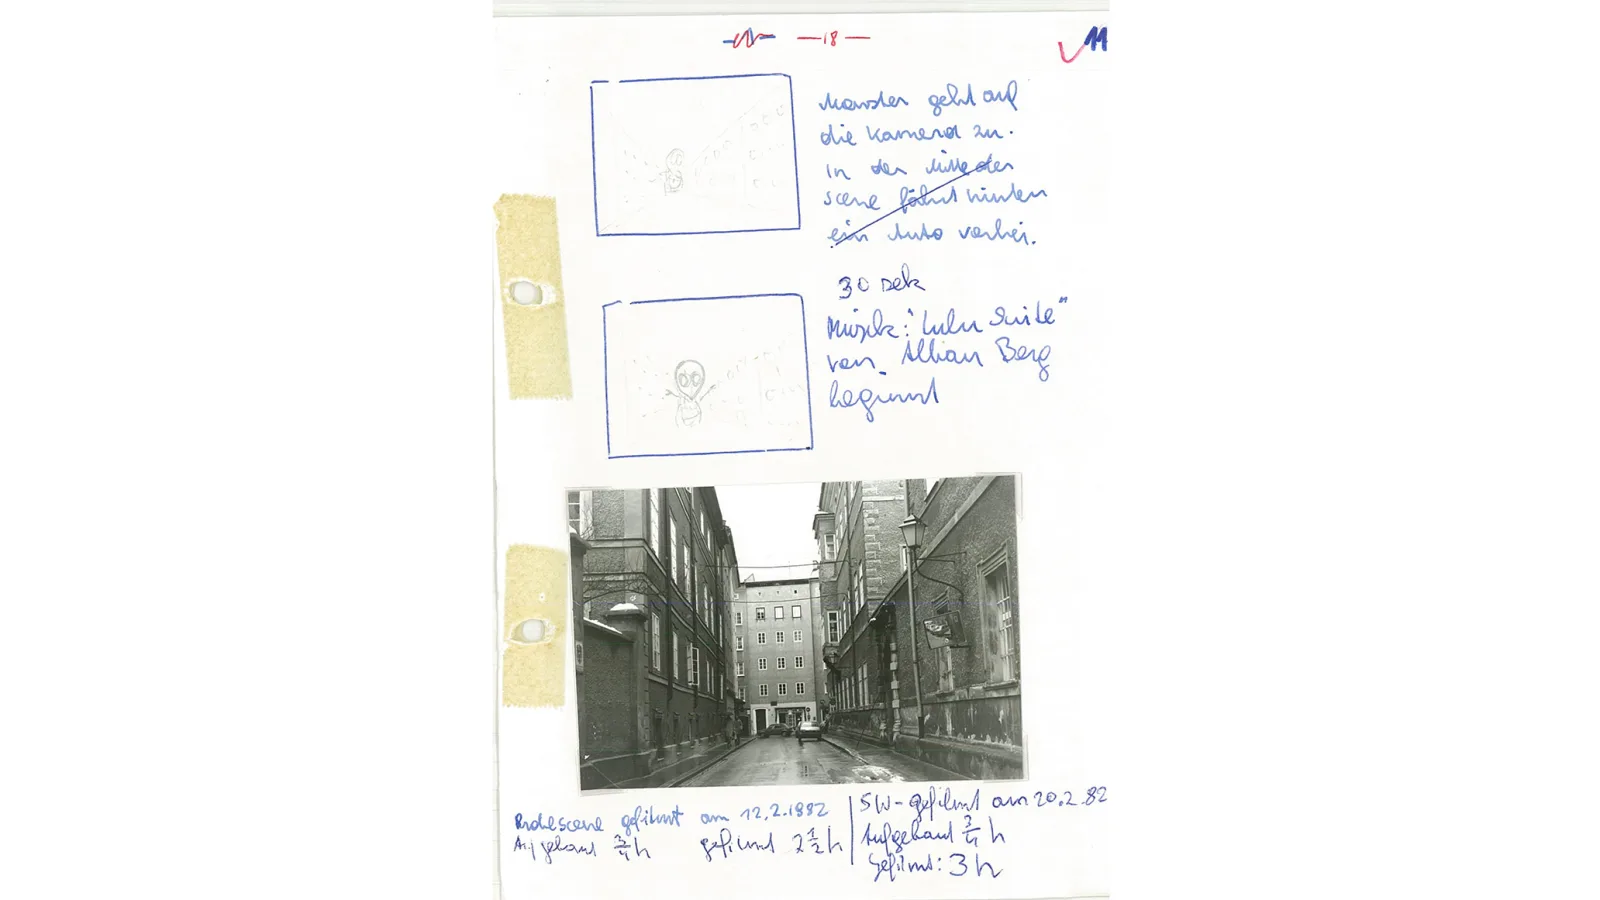 —18—
11
Monster geht auf
die Kamera zu.
in der Mitte der
scene fährt hinten
ein Auto vorbei.
30 sek
Musik: "Lulu Suite"
von Alban Berg
beginnt
Probescene gefilmt am 12.2.1982
Aufgebaut 3/4 h gefilmt 2 1/2 h
SW-gefilmt am 20.2.82
Aufgebaut 3/4 h
Gefilmt: 3 h